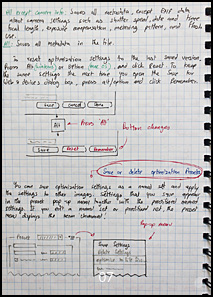 All except camera info: Saves all metadata, except EXIF data
about camera settings such as shutter speed, date and time
focal length, exposure compensation, metering pattern, and flash
use.
All: Saves all metadata in the file.
To reset optimization settings to the last saved version,
press Alt (windows) or Option (mac OS) and click Reset. To keep
the same settings the next time you open the Save for
Web & devices dialog box, press alt/option and click Remember.
Save Cancel Done
Alt → Press "Alt"
buttons changes
Save Reset Remember
Save or delete optimization Presets
You can save optimization settings as a named set and apply
the settings to other images. Settings that you save appear
in the preset pop up menu together with the
settings. If you edit a named set or predefined set, the Preset
menu displays the term unnamed.
Pop-up menu
Preset
Save Settings
Delete Settings